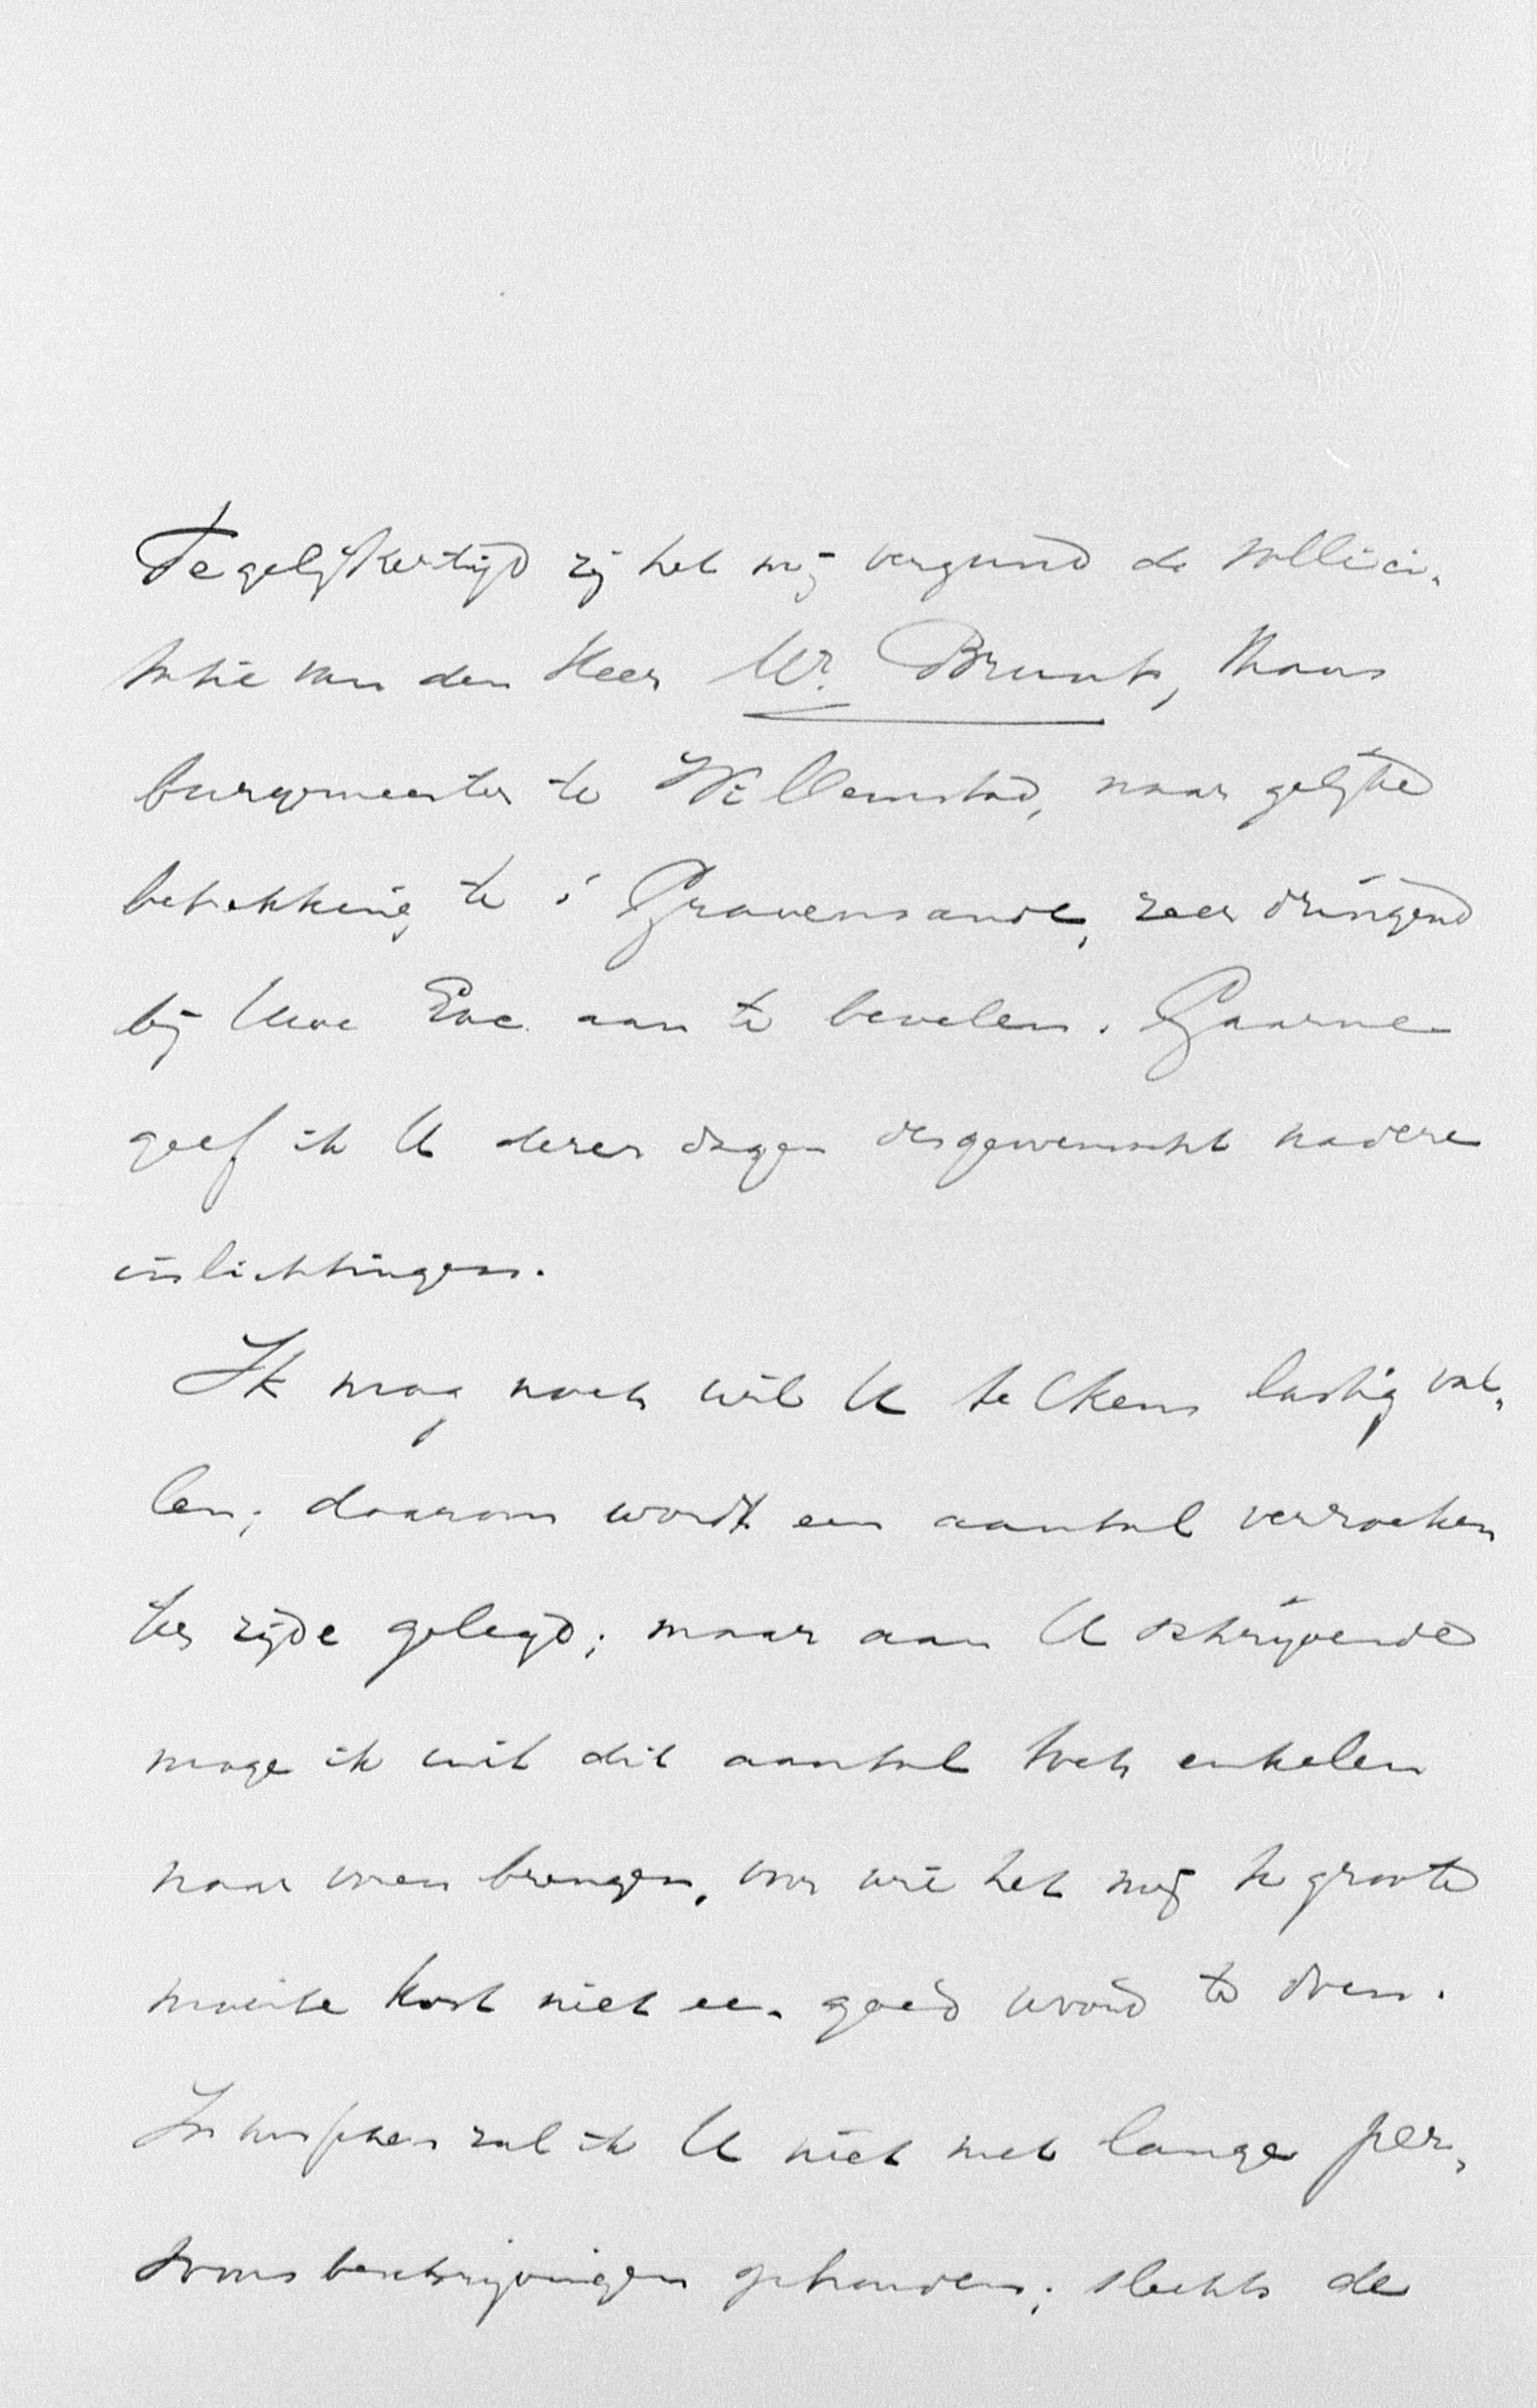 Tegelijkertijd zij het mij vergund de sollici-
tatie van den Heer Mr. Brunt, thans
burgemeester te Willemstad, naar gelijke
betrekking te 's Gravensande, zeer dringend
bij Uwe Exc. aan te bevelen. Gaarne
geef ik U dezer dagen desgewenscht nadere
inlichtingen.
Ik mag noch wil U telkens lastig val-
len; daarom wordt een aantal verzoeken
ter zijde gelegd; maar aan U schrijvende
moge ik uit dit aantal toch enkelen
naar voren brengen, voor wie het mij te groote
moeite kost niet een goed woord te doen.
Intusschen zal ik U niet met lange per-
soonsbeschrijvingen ophouden; slechts de